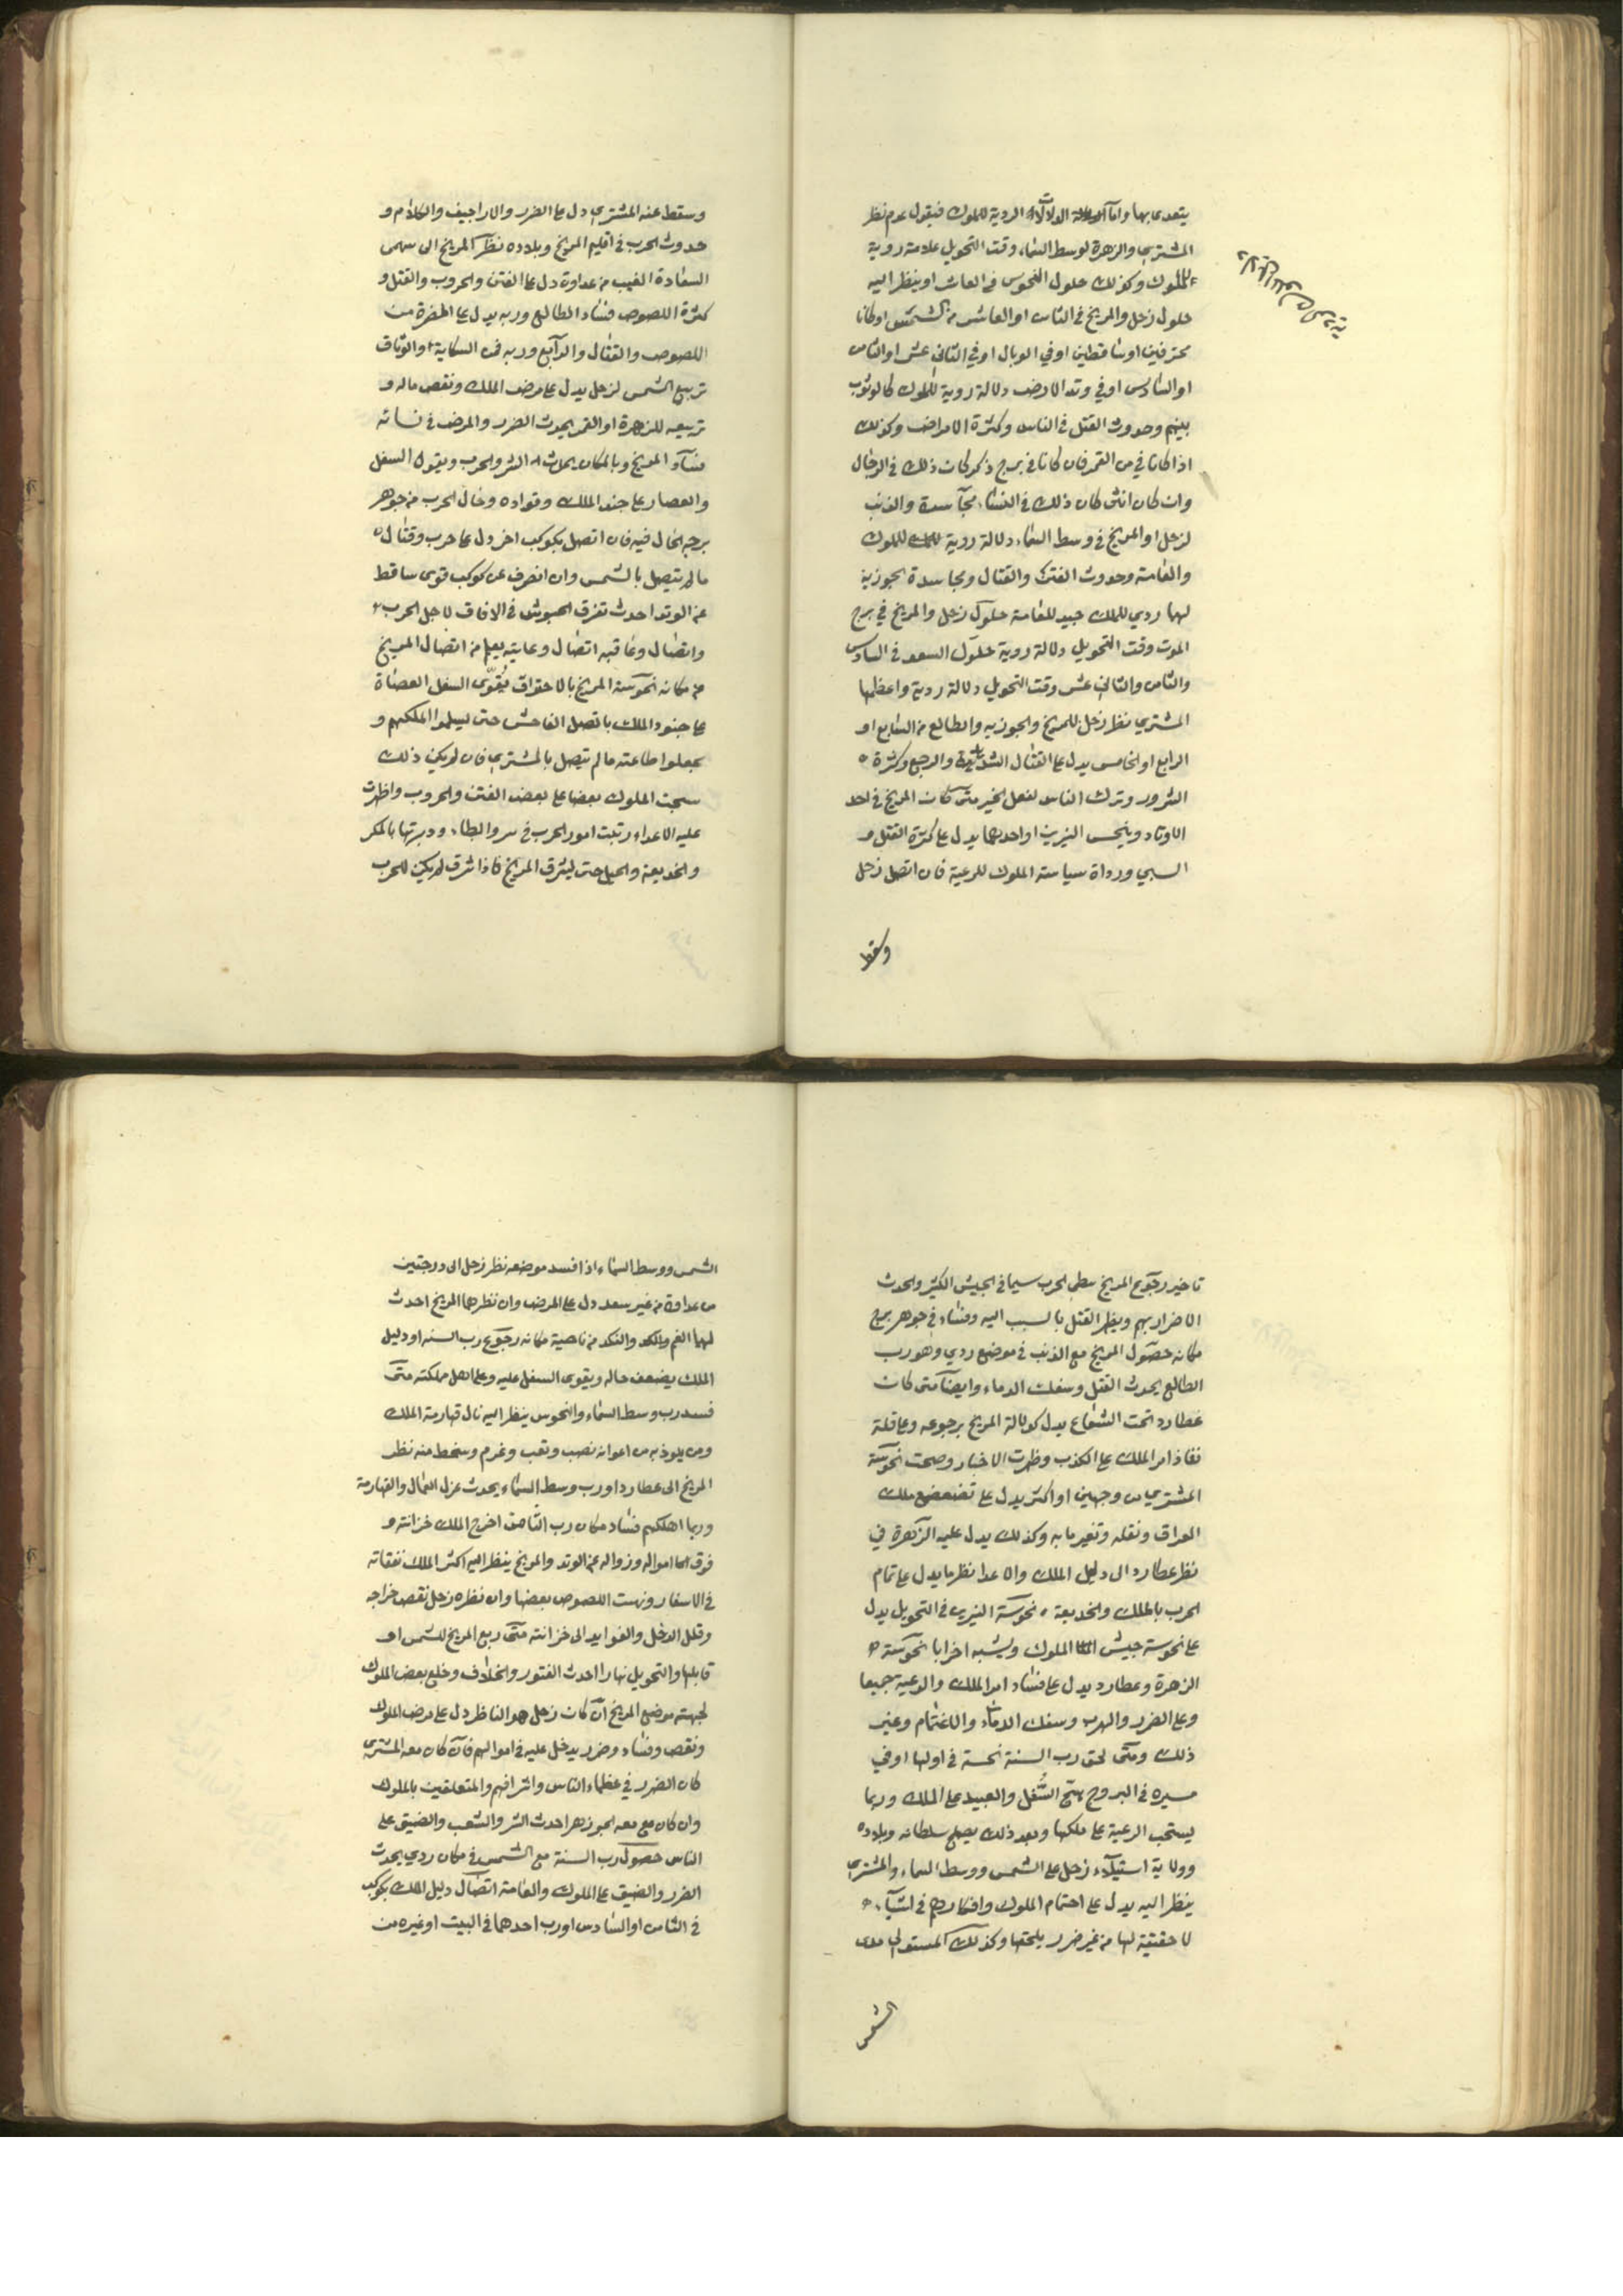 يتعدى بها واما الدلالات الردية للملوك فيقول عدم نظر
المشتري والزهرة لوسط السماء وقت التحويل علامة ردية
للملوك وكذلك حلول النحوس في العاشر او ينظر اليه
حلول زحل والمريخ في الثامن او العاشر من الشمس او كانا
محترقين او ساقطين او في الوبال او في الثاني عشر او الثامن
او السادس او في وتد الارض دلالة ردية للملوك كالوثوب
بينهم وحدوث القتل في الناس وكثرة الامراض وكذلك
اذا كانا في من القمر فان كانا في برج ذكر كان ذلك في الرجال
وان كان انثى كان ذلك في النساء مجاسدة والذنب
لزحل او المريخ في وسط السماء دلالة ردية للملوك
والعامة وحدوث الفتن والقتال ومجاسدة الجوزية
لهما ردي للملك جيد للعامة حلول زحل والمريخ في برج
الموت وقت التحويل دلالة ردية حلول السعد في السادس
والثامن والثاني عشر وقت التحويل دلالة ردية واعظمها
المشتري نظر زحل للمريخ والجوزيه والطالع من السابع او
الرابع او الخامس يدل على القتال والرجع وكثرة
الشرور وترك الناس لفعل الخير متى كان المريخ في احد
الاوتاد وينحس النيرين او احدهما يدل على كثرة القتل و
السبي ورداة سياسة الملوك للرعية فان اتصل زحل
وسقط
وسقط عنه المشتري دل على الضرر والاراجيف والكلام و
حدوث الحرب في اقليم المريخ وبلاده نظر المريخ الى سهمى
السعادة الغيب من عداوة دل على الفتن والحروب والقتل و
كثرة اللصوص فساد الطالع وربه يدل على المضرة من
اللصوص والقتال والرابع وربه في السكاية والوثاق
تربيع الشمس لزحل يدل على مرض الملك ونقص ماله و
تربيعه للزهرة او القمر يحدث الضرر والمرض في نسائه
فساد المريخ وبالمكان يحدث الشر والحرب ويقوى السفل
والعصار على جند الملك وقواده وحال الحرب من جوهر
برجه الحال فيه فان اتصل بكوكب اخر دل على حرب وقتال
ما لم يتصل بالشمس وان انصرف عن كوكب قوى ساقط
عن الوتد احدث تفرق الجيوش في الافاق لاجل الحرب
واتصال وعاقبه اتصال وغايته يعلم من اتصال المريخ
من مكانه نحوسة المريخ بالاحتراق يقوى السفل العصاة
على جنود الملك باتصل الفاحش حتى ليسلموا الملكهم و
يجعلوا طاعته ما لم يتصل بالمشتري فان لم يكن ذلك
سحبت الملوك بعضا على بعض الفتن والحروب واظهرت
عليه الاعداء رتبت امور الحرب في سر والطاء ودبرتها بالمكر
والخديعة والحيل حتى يشرق المريخ فاذا شرق لم يكن للحرب
تاخير رجوع المريخ يبطى الحرب سيما في الجيش الكثير والحدث
الاضرار بهم ويظهر القتل بالسبب اليه وفساد في جوهر برج
مكانه حصول المريخ مع الذنب في موضع ردي وهو رب
الطالع يحدث القتل وسفك الدماء وايضا متى كان
عطارد تحت الشعاع يدل كدلالة المريخ برجوعه وعاقلة
نفاذ امر الملك على الكذب وظهرت الاخبار وصحت نحوسة
المشتري من وجهين او اكثر يدل على تضعضع ملك
العراق ونقله وتغير ما به وكذلك يدل عليه الزهرة في
نظر عطارد الى دليل الملك والاعدا نظر ما يدل على تمام
الحرب بالملك والخديعة نحوسة النيرين في التحويل يدل
على نحوسة جيش الملوك ويشبه اخرابا نحوسة
الزهرة وعطارد يدل على فساد امر الملك والرعية جميعا
وعلى الضرر والهرب وسفك الدماء والاغتمام وغير
ذلك ومتى لحق رب السنة نحسة في اولها او في
مسيره في البروج يهيج السفل والعبيد على الملك وربما
يستحب الرعية على ملكها وبعد ذلك يصلح سلطانه وبلاده
وولاية استيلاء زحل على الشمس ووسط السماء والمشتري
ينظر اليه يدل على اهتمام الملوك وافكارهم في اشياء
لا حقيقة لها من غير ضرر يلحقها وكذلك المستولي على
الشمس
الشمس ووسط السماء اذا فسد موضعه نظر زحل الى درجتين
من عداوة من غير سعد دل على المرض وان نظرهما المريخ احدث
لهما الغم والكد والنكد من ناحية مكانه رجوع رب السنة او دليل
الملك يضعف حاله ويقوى السفل عليه وعلى اهل مملكته متى
فسد رب وسط السماء والنحوس ينظر اليه نال قهارمة الملك
ومن يلوذ به من اعوانه نصب وتعب وغرم وسخط منه نظر
المريخ الى عطارد او رب وسط السماء يحدث عزل العمال والقهارمة
وربما اهلكهم فساد مكان رب الثامن اخرج الملك خزانته و
فرق امواله وزواله عن الوتد والمريخ ينظر اليه اكثر الملك نفقاته
في الاسفار ونهبت اللصوص بعضها وان نظره زحل نقص خراجه
وقلل الدخل والفوايد الى خزانته متى ربع المريخ للشمس او
قابلها والتحويل نهارا احدث الفتور والخلاف وخلع بعض الملوك
لجهته موضع المريخ ان كان زحل هو الناظر دل على مرض الملوك
ونقص وفساد وضرر يدخل عليه في اموالهم فان كان معه المشتري
كان الضرر في عظماء الناس واشرافهم والمتعلقين بالملوك
وان كان مع معه الجوزهر احدث الشر والشعب والضيق على
الناس حصول رب السنة مع الشمس في مكان ردي يحدث
الضرر والضيق على الملوك والعامة اتصال دليل الملك بكوكب
في الثامن او السادس او رب احدهما في البيت او غيره من